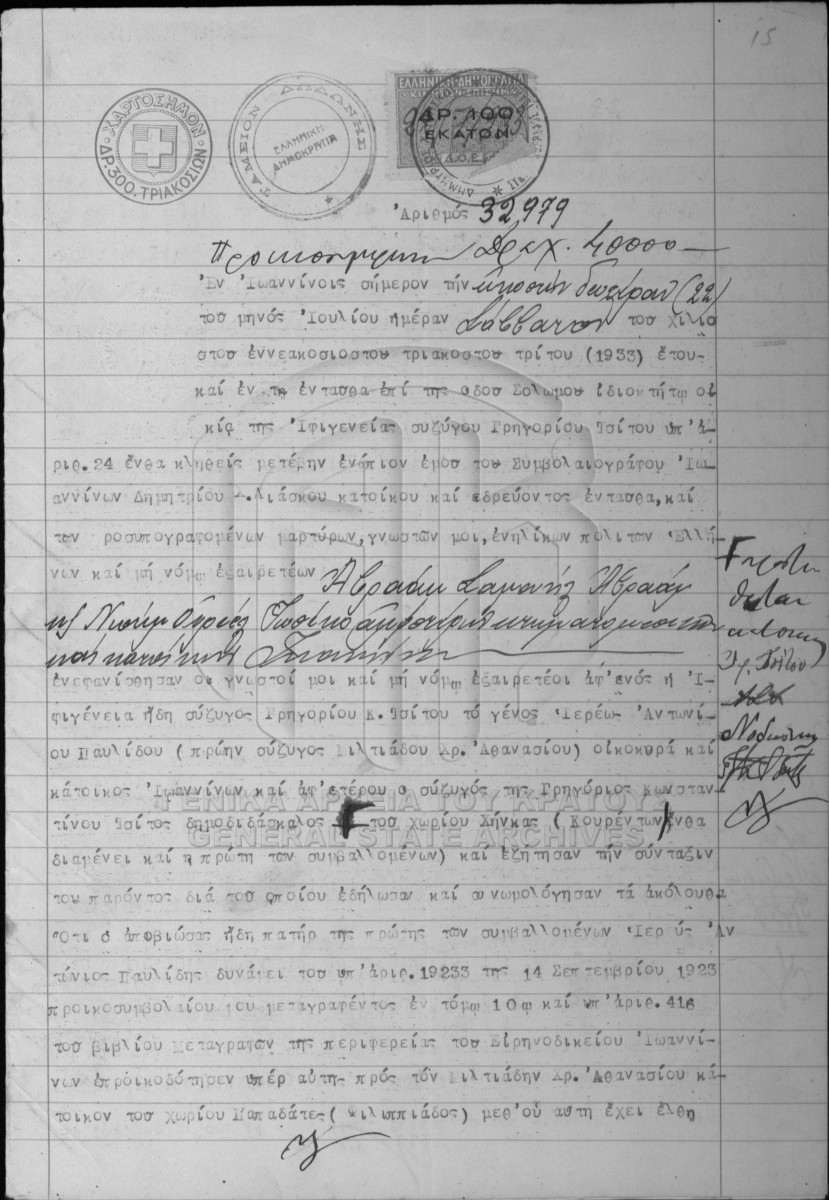 15
ΧΑΡΤΟΣΗΜΟΝ
ΔΡ.300.ΤΡΙΑΚΟΣΙΩΝ
ΤΑΜΕΙΟΝ ΔΩΔΩΝΗΣ
ΕΛΛΗΝΙΚΗ
ΔΗΜΟΚΡΑΤΙΑ
ΕΛΛΗΝΙΚΗ·ΔΗΜΟΚΡΑΤΙΑ
ΔΡ. 100
ΕΚΑΤΟΝ
Δ.Ο.Ε.
Ἀριθμός 32979
Δραχ. 40000
Ἐν Ἰωαννίνοις σήμερον τήν εἰκοστήν δευτέραν (22)
του μηνός Ἰουλίου ἡμέραν Σάββατον του χιλιο
στου ἐννεακοσιοστου τριακοστου τρίτου (1933) ἔτου-
καί ἐν τῃ ἐνταυθα ἐπί της οδου Σολωμου ἰδιοκτήτῳ οἰ
κίᾳ της Ἰφιγενείας συζύγου Γρηγορίου Τσίτου ὑπ' ἀ-
ριθ.24 ἔνθα κληθείς μετέβην ἐνώπιον ἐμου του Συμβολαιογράφου Ἰω-
αννίνων Δημητρίου Λιάσκου κατοίκου καί εδρεύοντος ἐνταυθα,καί
των ροσυπογραφομένων μαρτύρων,γνωστῶν μοι,ἐνηλίκων πολιτων Ἑλλή-
νων καί μή νόμῳ ἐξαιρετέων Ἀβραάμ Σαμουήλ Ἀβραάμ
καί κατοίκων
ἐνεφανίσθησαν οἱ γνωστοί μοι καί μή νόμῳ ἐξαιρετέοι ἀφ'ἑνός ἡ Ἰ-
φιγένεια ἤδη σύζυγος Γρηγορίου Κ.Τσίτου τό γένος Ἱερέως Ἀντωνί-
ου Παυλίδου ( πρώην σύζυγος Μιλτιάδου Χρ.Ἀθανασίου) οἰκοκυρά καί
κάτοικος Ἰωαννίνων καί ἀφ'ετέρου ο σύζυγός της Γρηγόριος Κωνσταν
τίνου Τσίτος δημοδιδάσκαλος του χωρίου Χήνκας ( Κουρέντων) ἔνθα
διαμένει καί η πρώτη των συμβαλλομένων) καί ἐζήτησαν τήν σύνταξιν
του παρόντος διά του οποίου ἐδήλωσαν καί συνωμολόγησαν τά ἀκόλουθα
Ὅτι ὁ ἀποβιώσας ἤδη πατήρ της πρώτης των συμβαλλομένων Ἱερεύς Ἀν
τώνιος Παυλίδης δυνάμει του ὑπ'ἀριθ.19233 της 14 Σεπτεμβρίου 1923
προικοσυμβολαίου μου μεταγραφέντος ἐν τόμῳ 10ῳ καί ὑπ'ἀριθ.416
του βιβλίου Μεταγραφων της περιφερείας του Εἰρηνοδικείου Ἰωαννί-
νων ἐπροικοδότησεν υπέρ αὐτης πρός τόν Μιλτιάδην Χρ.Ἀθανασίου κά-
τοικον του χωρίου Παπαδάτες( Φιλιππιάδος) μεθ'οὗ αὕτη ἔχει ἔλθη
ΓΕΝΙΚΑ ΑΡΧΕΙΑ ΤΟΥ ΚΡΑΤΟΥΣ
GENERAL STATE ARCHIVES